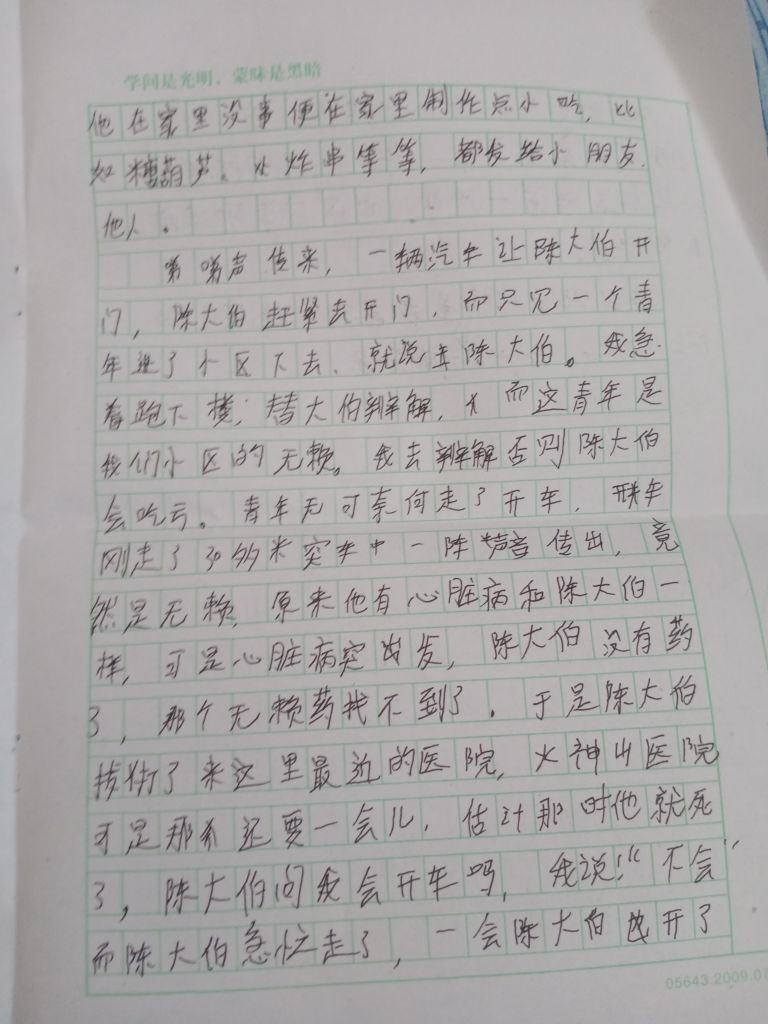 学问是光明，蒙昧是黑暗
他在家里没事便在家里制作点小吃，比
如糖葫芦。炸串等等，都发给小朋友
他人。
嘀嘀声传来，一辆汽车让陈大伯开
门，陈大伯赶紧去开门，而只见一个青
年进了小区下去，就说陈大伯。我急
着跑下楼，替大伯辩解，而这青年是
我们小区的无赖。我去辩解否则陈大伯
会吃亏。青年无可奈何走了开车，车
刚走了30多米突车中一阵声音传出，竟
然是无赖，原来他有心脏病和陈大伯一
样，可是心脏病突发，陈大伯没有药
了，那个无赖药找不到了。于是陈大伯
来这里最近的医院，火神山医院
可是那还要一会儿，估计那时他就死
了，陈大伯问我会开车吗，我说：“不会”
而陈大伯急忙走了，一会陈大伯开了
05643.2009.07